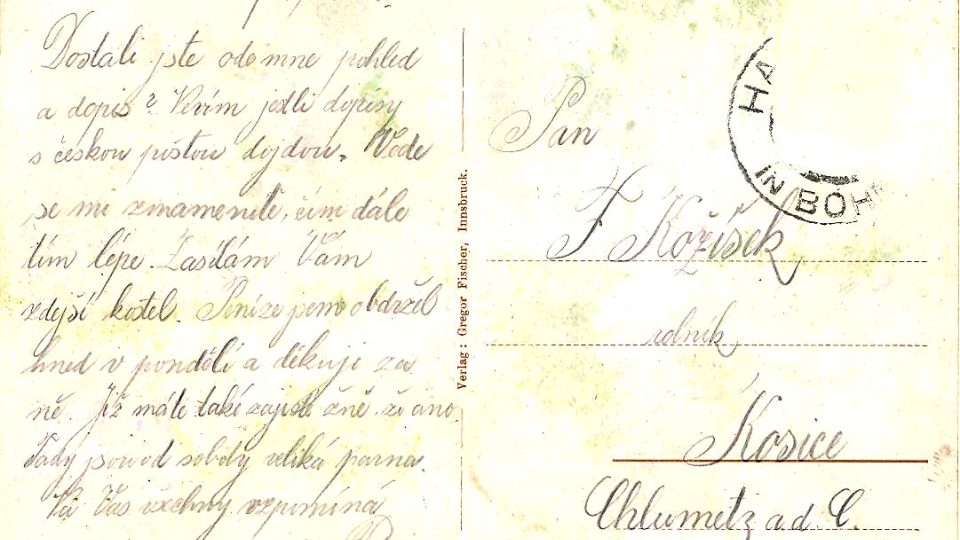 Dostali jste odemne pohled
a dopis? Nevím jestli dopisy
s českou poštou dojdou. Vede
se mi znamenitě, čím dále
tím lépe. Zasílám Vám
zdejší kostel. Peníze jsem obdržel
hned v pondělí a děkuji za
ně. Již máte také zajisté žně, že ano
Tady jsou od soboty veliká parna.
Na Vás všechny vzpomíná
Verlag: Gregor Fischer, Innsbruck.
HA
IN BÖH
Pan
F Kožíšek
rolník
Kosice
Chlumetz a.d. C.